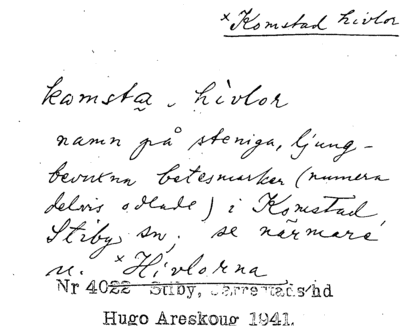 × Komstad hivlor
komsta hivlor
namn på steniga, ljung-
bevuxna betesmarker (numera
delvis odlade) i Komstad,
Stiby sn; se närmare
u. × Hivlorna
Nr 4022 Stiby, Järrestads hd
Hugo Areskoug 1941.